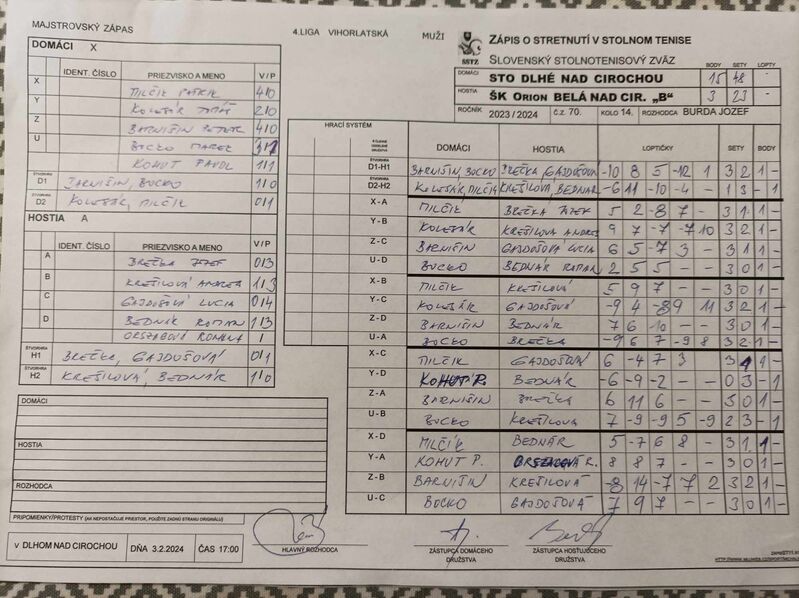 MAJSTROVSKÝ ZÁPAS
4.LIGA VIHORLATSKÁ MUŽI
ZÁPIS O STRETNUTÍ V STOLNOM TENISE
SLOVENSKÝ STOLNOTENISOVÝ ZVÄZ
SSTZ
BODY SETY LOPTY
DOMÁCI STO DLHÉ NAD CIROCHOU 15 48 -
HOSTIA ŠK ORION BELÁ NAD CIR. „B" 3 23 -
ROČNÍK 2023 / 2024 č.z. 70. KOLO 14. ROZHODCA BURDA JOZEF
DOMÁCI X
IDENT. ČÍSLO PRIEZVISKO A MENO V/P
X MILČÍK PATRIK 4/0
Y KOLESÁR 2/0
Z BARNIŠIN PETER 4/0
U BOCKO MAREK
KOHUT PAVOL 1/1
ŠTVORHRA D1 BARNIŠIN, BOCKO 1/0
D2 KOLESÁR, MILČÍK 0/1
HOSTIA A
IDENT. ČÍSLO PRIEZVISKO A MENO V/P
A BREČKA JOZEF 0/3
B KREŠILOVÁ ANDREA 1/3
C GAJDOŠOVÁ LUCIA 0/4
D BEDNÁR ROMAN 1/3
ROMANA
ŠTVORHRA H1 BREČKA, GAJDOŠOVÁ 0/1
H2 KREŠILOVÁ, BEDNÁR 1/0
HRACÍ SYSTÉM
DOMÁCI HOSTIA LOPTIČKY SETY BODY
ŠTVORHRA D1-H1 BARNIŠIN, BOCKO BREČKA, GAJDOŠOVÁ -10 8 5 -12 1 3 2 1 -
ŠTVORHRA D2-H2 KOLESÁR, MILČÍK KREŠILOVÁ, BEDNÁR -6 11 -10 -4 - 1 3 - 1
X-A MILČÍK BREČKA JOZEF 5 2 -8 7 - 3 1 1 -
Y-B KOLESÁR KREŠILOVÁ ANDREA 9 7 -7 -7 10 3 2 1 -
Z-C BARNIŠIN GAJDOŠOVÁ LUCIA 6 5 -7 3 - 3 1 1 -
U-D BOCKO BEDNÁR ROMAN 2 5 5 - - 3 0 1 -
X-B MILČÍK KREŠILOVÁ 5 9 7 - - 3 0 1 -
Y-C KOLESÁR GAJDOŠOVÁ -9 4 -8 9 11 3 2 1 -
Z-D BARNIŠIN BEDNÁR 7 6 10 - - 3 0 1 -
U-A BOCKO BREČKA -9 6 7 -9 8 3 2 1 -
X-C MILČÍK GAJDOŠOVÁ 6 -4 7 3 - 3 1 1 -
Y-D KOHUT P. BEDNÁR -6 -9 -2 - - 0 3 - 1
Z-A BARNIŠIN BREČKA 6 11 6 - - 3 0 1 -
U-B BOCKO KREŠILOVÁ 7 -9 -9 5 -9 2 3 - 1
X-D MILČÍK BEDNÁR 5 -7 6 8 - 3 1 1 -
Y-A KOHUT P. R. 8 8 7 - - 3 0 1 -
Z-B BARNIŠIN KREŠILOVÁ -8 14 -7 7 2 3 2 1 -
U-C BOCKO GAJDOŠOVÁ 7 9 7 - - 3 0 1 -
DOMÁCI
HOSTIA
ROZHODCA
PRIPOMIENKY/PROTESTY (AK NEPOSTAČUJE PRIESTOR, POUŽITE ZADNÚ STRANU ORIGINÁLU)
V DLHOM NAD CIROCHOU DŇA 3.2.2024 ČAS 17:00
HLAVNÝ ROZHODCA
ZÁSTUPCA DOMÁCEHO DRUŽSTVA
ZÁSTUPCA HOSŤUJÚCEHO DRUŽSTVA